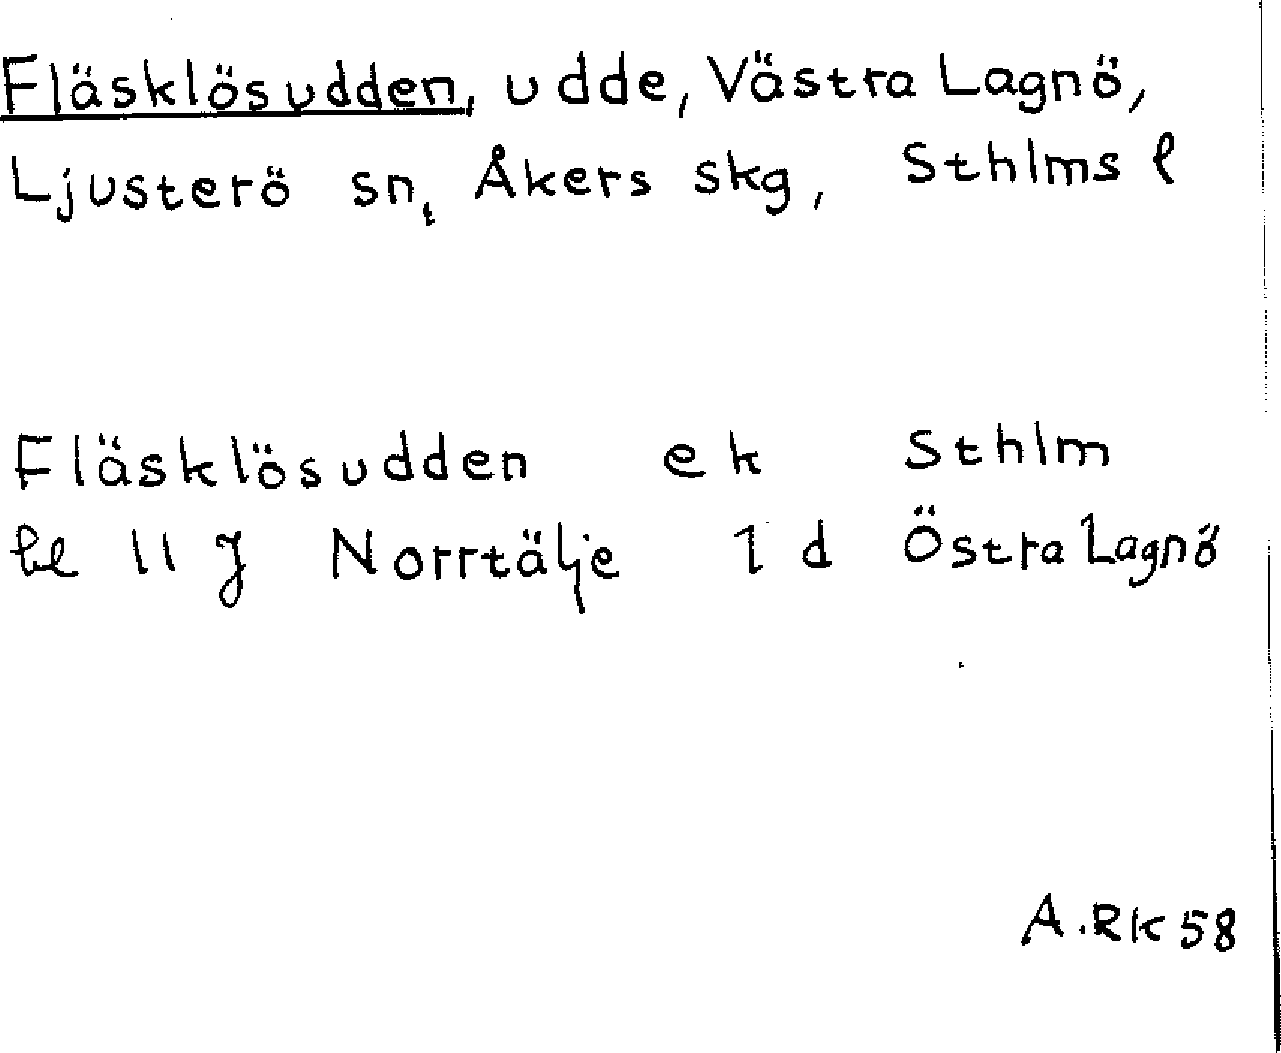 Fläsklösudden, udde, Västra Lagnö,
Ljusterö sn, Åkers skg, Sthlms l
Fläsklösudden ek Sthlm
bl 11 J Norrtälje 1 d Östra Lagnö
A.RK 58